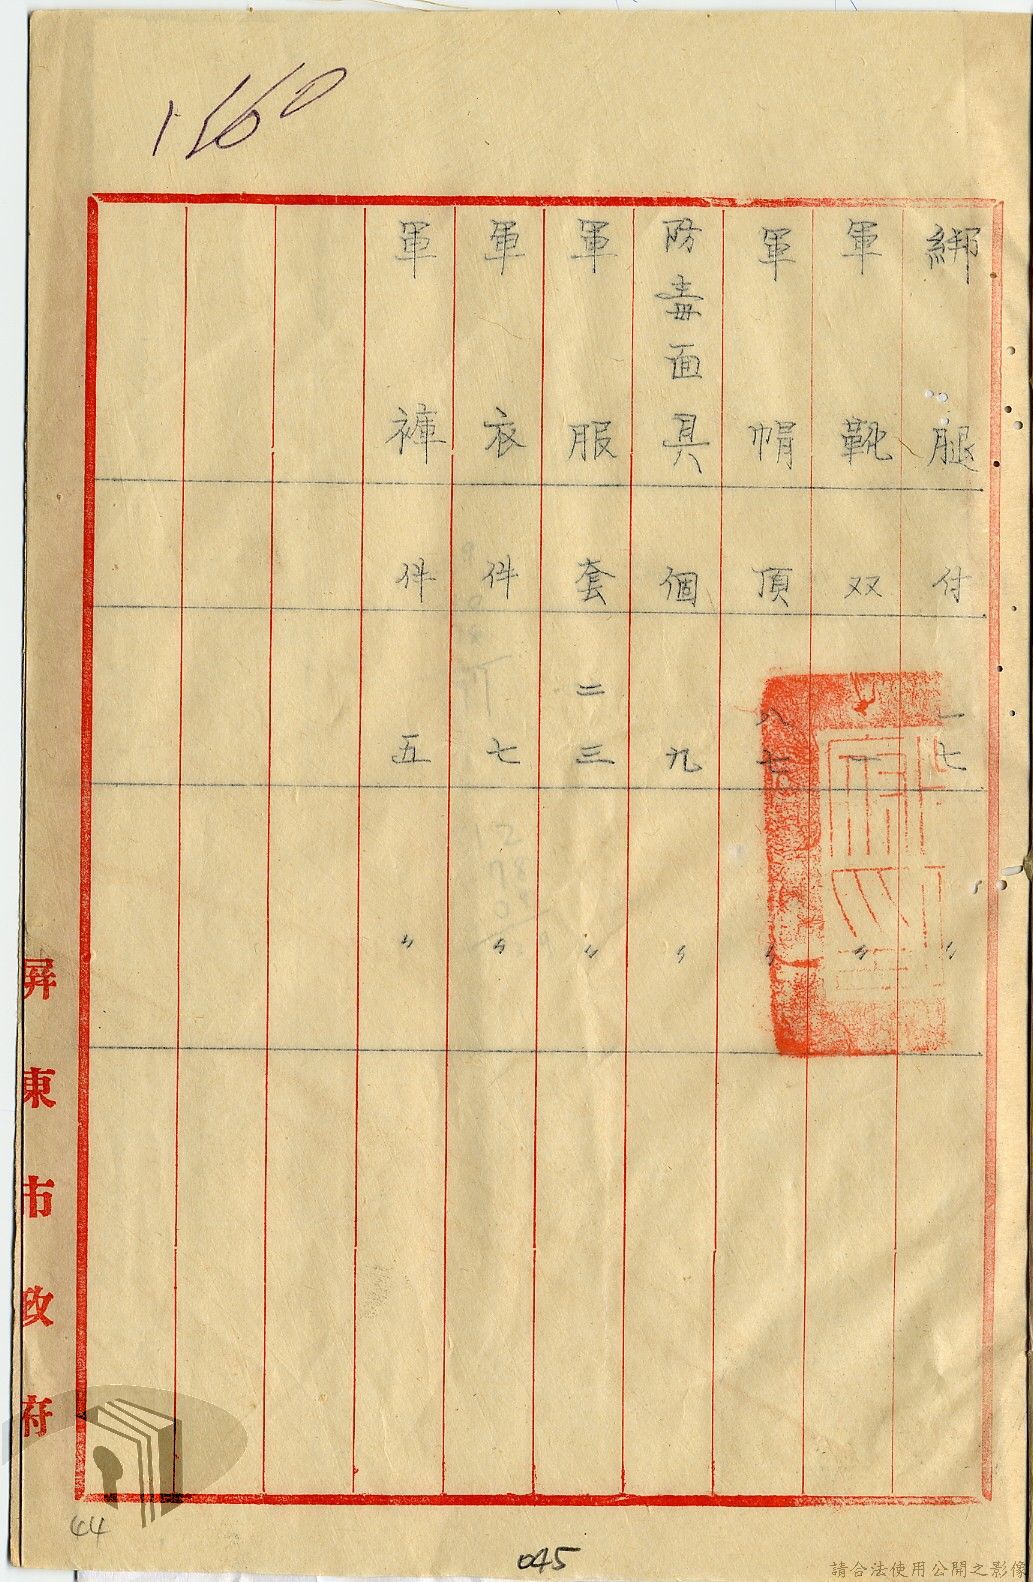 1560
綁腿 付 一七 〃
軍靴 双 一 〃
軍帽 頂 八七 〃
防毒面具 個 九 〃
軍服 套 二三 〃
軍衣 件 七 〃
軍褲 件 五 〃
屏東市政府
44
045
請合法使用公開之影像